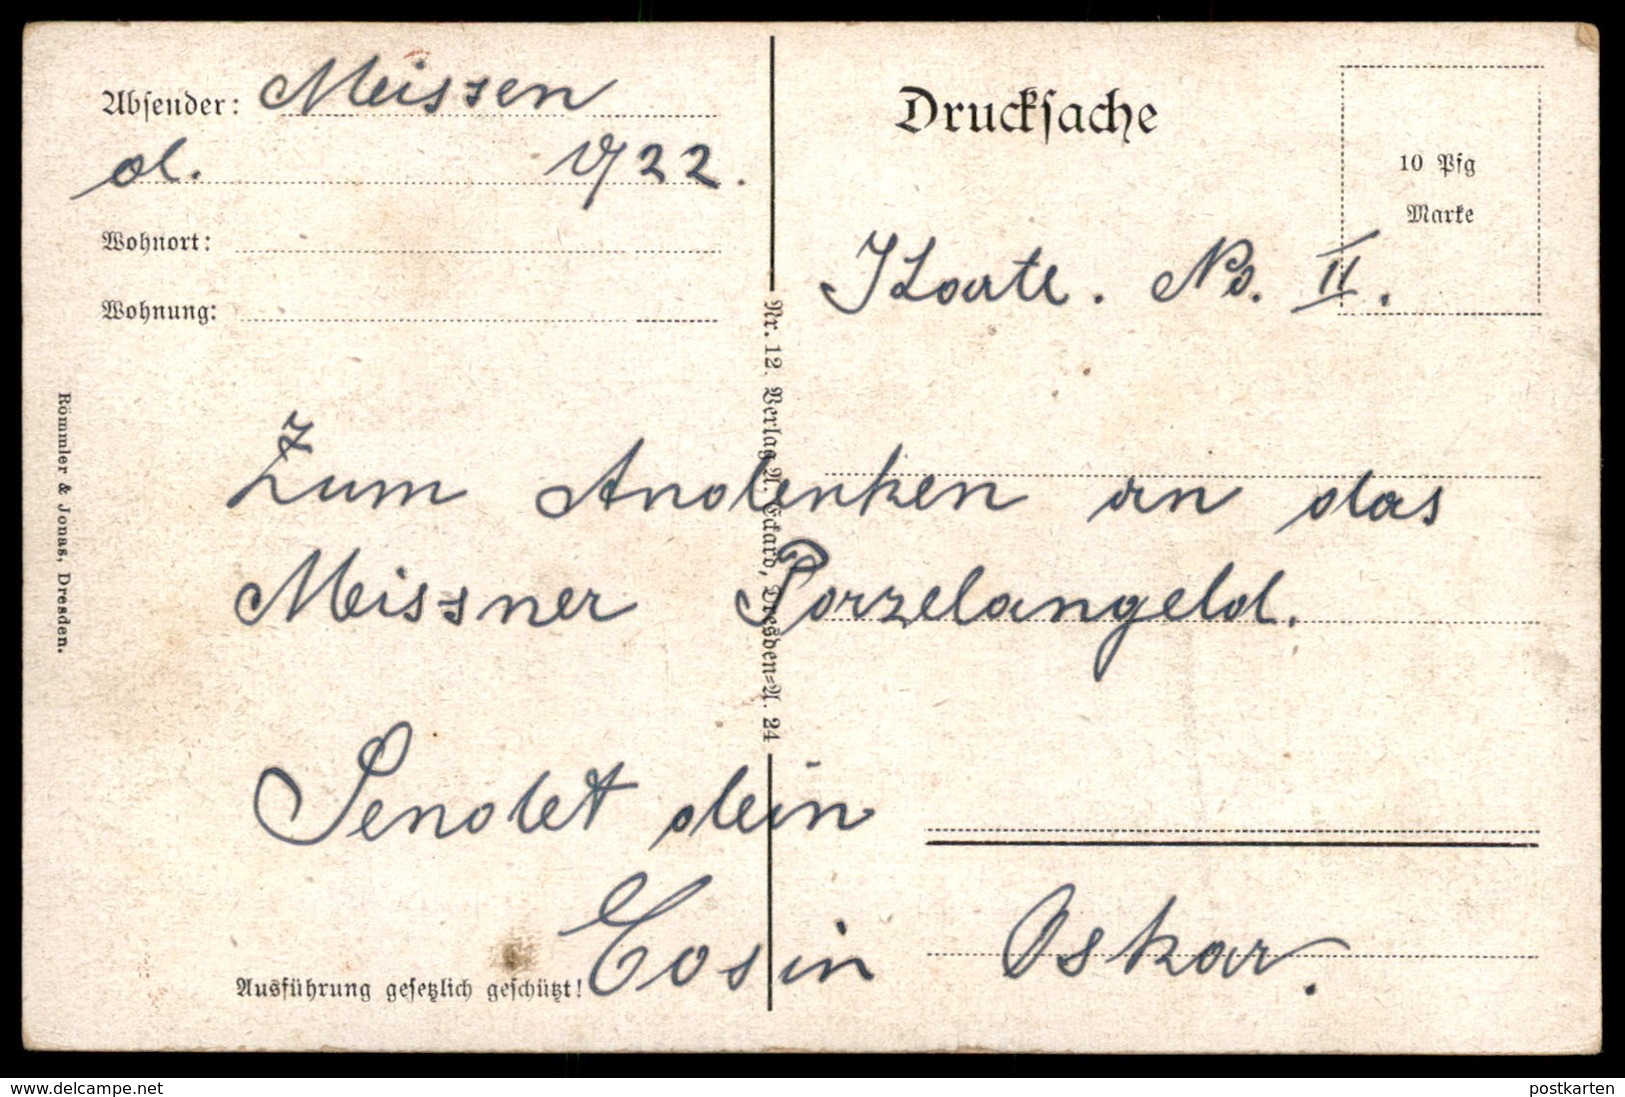 Absender: Meissen
d. 1922.
Wohnort:
Wohnung:
Drucksache
10 Pfg
Marke
Karte. No. II.
Zum Andenken an das
Meissner Porzelangeld.
Sendet dein
Cosin Oskar.
Ausführung gesetzlich geschützt!
Nr. 12. Verlag A. Eckard, Dresden=A. 24
Römmler & Jonas, Dresden.
www.delcampe.net
postkarten